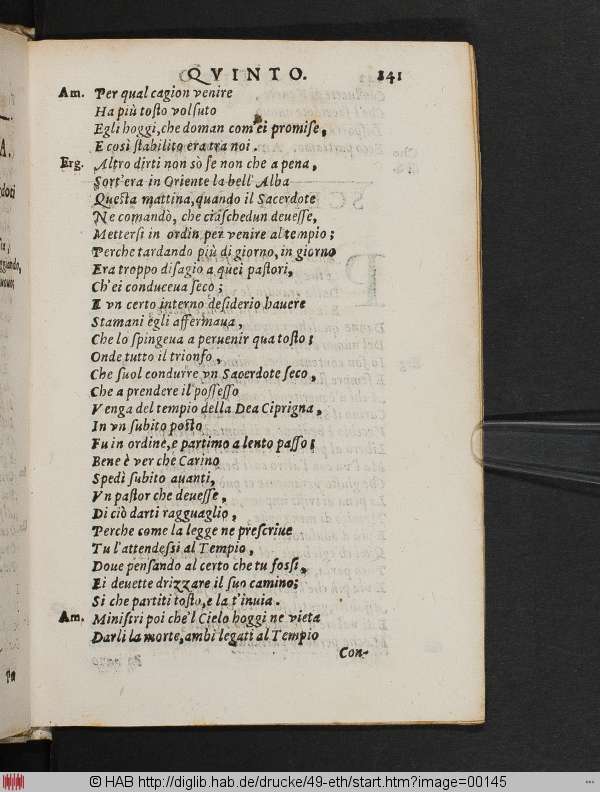 QVINTO. 141
Am. Per qual cagion venire
Ha più tosto volsuto
Egli hoggi, che doman com' ei promise,
E così stabilito era tra noi.
Erg. Altro dirti non sò se non che a pena,
Sort'era in Oriente la bell' Alba
Questa mattina, quando il Sacerdote
Ne comandò, che ciaschedun deuesse,
Mettersi in ordin per venire al tempio;
Perche tardando più di giorno, in giorno
Era troppo disagio a quei pastori,
Ch'ei conduceua seco;
E vn certo interno desiderio hauere
Stamani egli affermaua,
Che lo spingeua a peruenir qua tosto;
Onde tutto il trionfo,
Che suol condurre vn Sacerdote seco,
Che a prendere il possesso
Venga del tempio della Dea Ciprigna,
In vn subito posto
Fu in ordine, e partimo a lento passo;
Bene è ver che Carino
Spedì subito auanti,
Vn pastor che deuesse,
Di ciò darti ragguaglio,
Perche come la legge ne prescriue
Tu l'attendessi al Tempio,
Doue pensando al certo che tu fossi,
Ei deuette drizzare il suo camino;
Si che partiti tosto, e la t'inuia.
Am. Ministri poi che'l Cielo hoggi ne vieta
Darli la morte, ambi legati al Tempio
Con-
A.
© HAB http://diglib.hab.de/drucke/49-eth/start.htm?image=00145